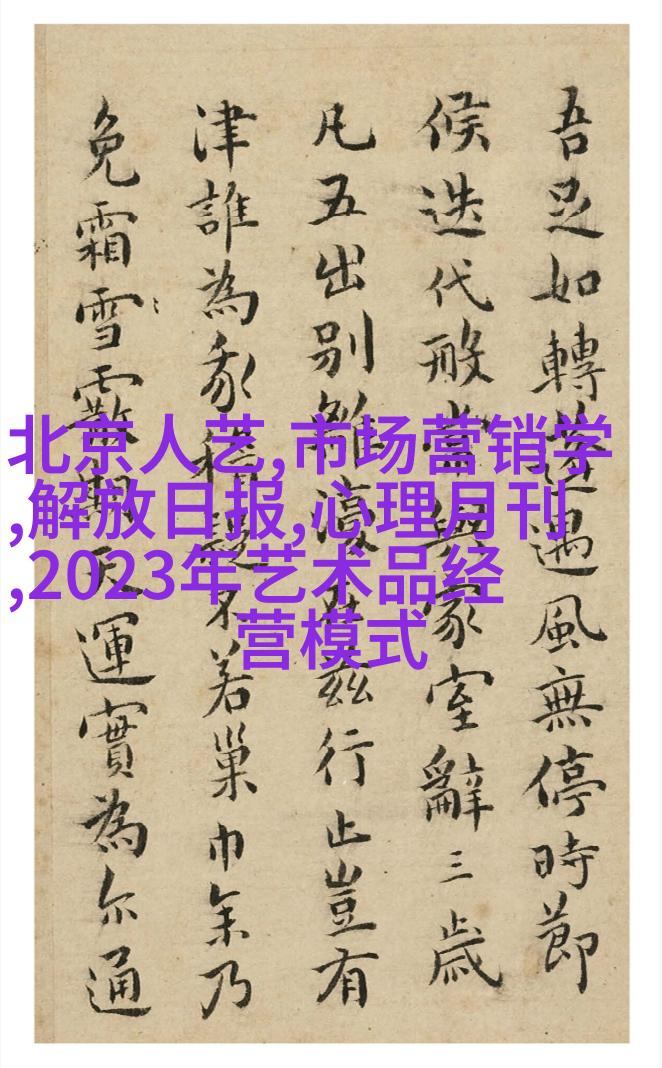 吾足如轉遇風無停時節
候迭代般當與家室辭三歲
凡五出别離濠茲行止豈有
津誰為稽疑不若巢巾年乃
免霜雪霰天運實為尔通
北京人艺,市场营销学
,解放日报,心理月刊
,2023年艺术品经
营模式